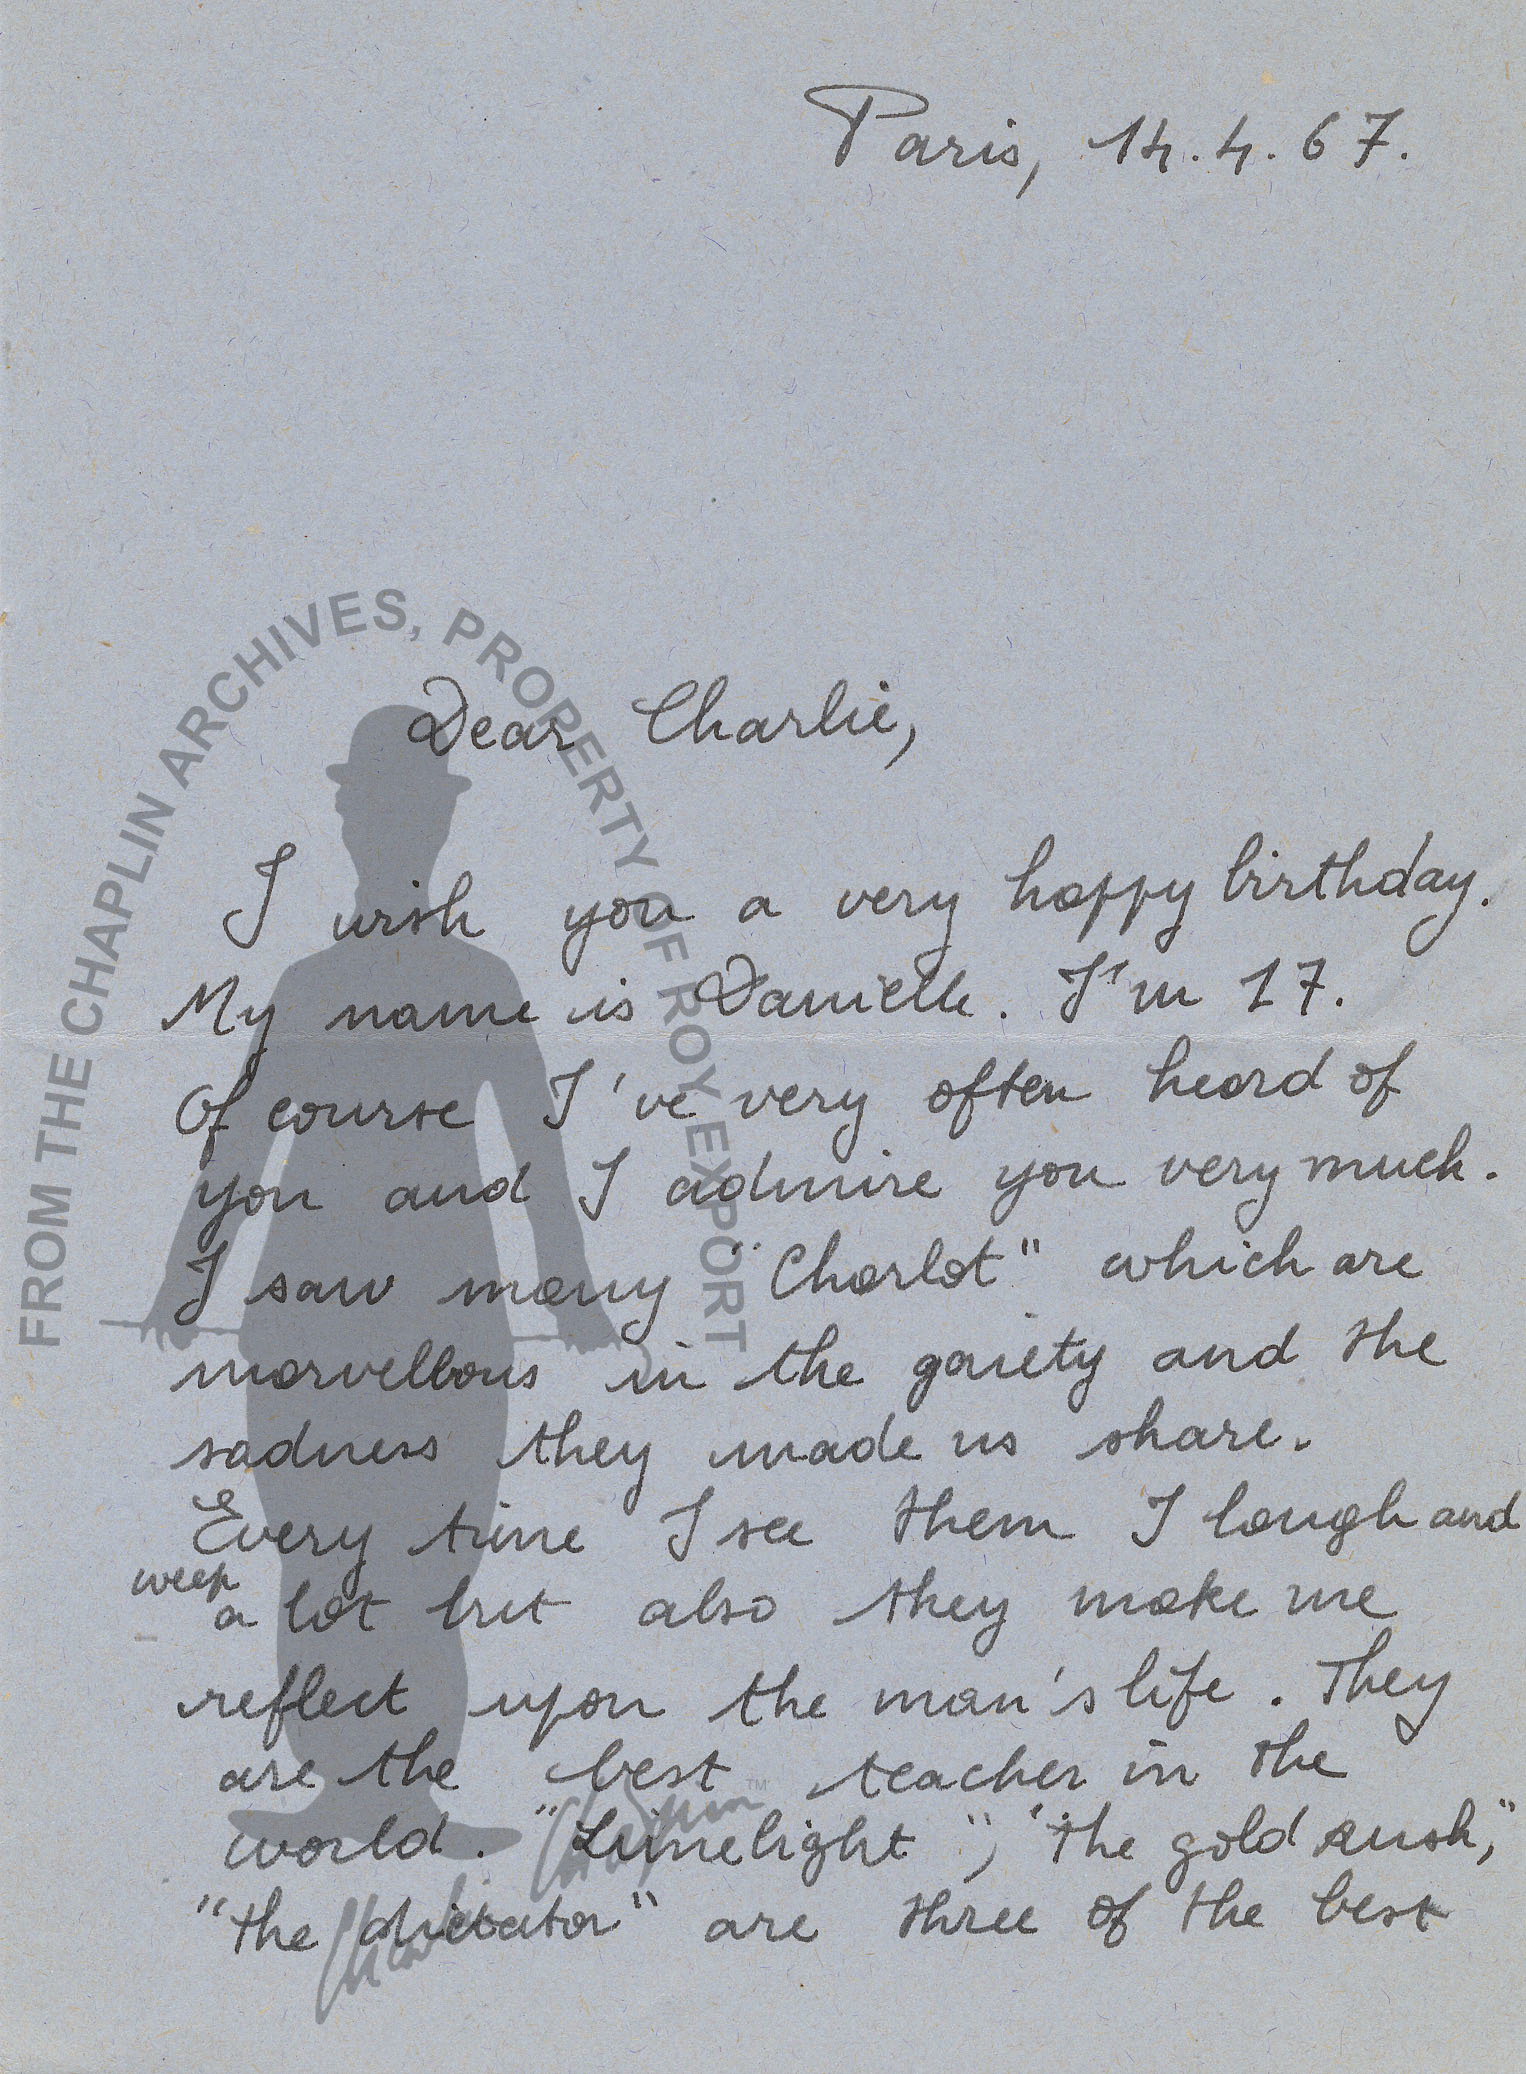 Paris, 14.4.67.
FROM THE CHAPLIN ARCHIVES, PROPERTY OF ROY EXPORT
Dear Charlie,
I wish you a very happy birthday.
My name is Danielle. I'm 17.
Of course I've very often heard of
you and I admire you very much.
I saw many "Charlot" which are
marvellous in the gaiety and the
sadness they made us share.
Every time I see them I laugh and
weep
a lot but also they make me
reflect upon the man's life. They
are the best teacher in the
world. "Limelight", "the gold rush,"
"the dictator" are three of the best
Charlie Chaplin TM